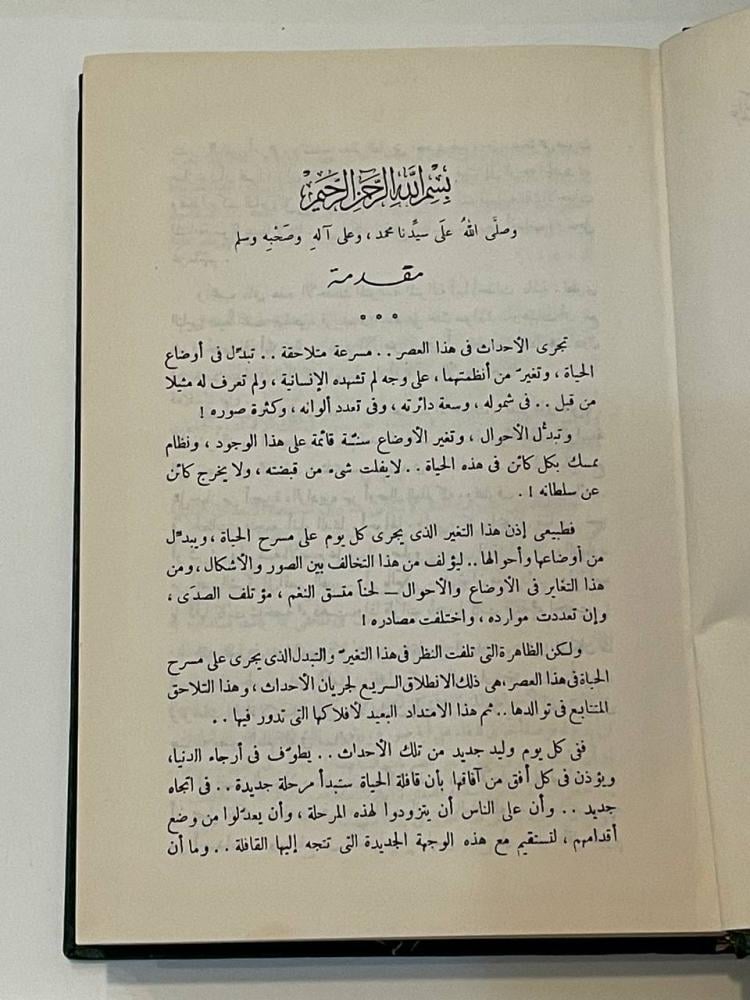 بِسْمِ اللهِ الرَّحْمٰنِ الرَّحِيْمِ
وصلَّى اللهُ علَى سيِّدنا محمد، وعلى آلهِ وصَحْبِهِ وسلم
مقدمة
تجرى الأحداث فى هذا العصر . . مسرعة متلاحقة . . تبدّل فى أوضاع
الحياة ، وتغيرّ من أنظمتهما ، على وجه لم تشهده الإنسانية ، ولم تعرف له مثيلا
من قبل . . فى شموله ، وسعة دائرته ، وفى تعدد ألوانه ، وكثرة صوره !
وتبدُّل الأحوال ، وتغير الأوضاع سنّة قائمة على هذا الوجود ، ونظام
يمسك بكل كائن فى هذه الحياة . . لا يفلت شىء من قبضته ، ولا يخرج كائن
عن سلطانه ! .
فطبيعى إذن هذا التغير الذى يجرى كل يوم على مسرح الحياة ، ويبدّل
من أوضاعها وأحوالها . . ليؤلف من هذا التخالف بين الصور والأشكال ، ومن
هذا التغاير فى الأوضاع والأحوال — لحناً متسق النغم ، مؤتلف الصدَى ،
وإن تعددت موارده ، واختلفت مصادره !
ولكن الظاهرة التى تلفت النظر فى هذا التغيرّ والتبدل الذى يجرى على مسرح
الحياة فى هذا العصر ، هى ذلك الانطلاق السريع لجريان الأحداث ، وهذا التلاحق
المتتابع فى توالدها . . ثم هذا الامتداد البعيد لأفلاكها التى تدور فيها . .
فنى كل يوم وليد جديد من تلك الأحداث . . يطوّف فى أرجاء الدنيا،
ويؤذن فى كل أفق من آفاقها بأن قافلة الحياة ستبدأ مرحلة جديدة . . فى اتجاه
جديد . . وأن على الناس أن يتزودوا لهذه المرحلة ، وأن يعدّلوا من وضع
أقدامهم ، لتستقيم مع هذه الوجهة الجديدة التى تتجه إليها القافلة . . وما أن